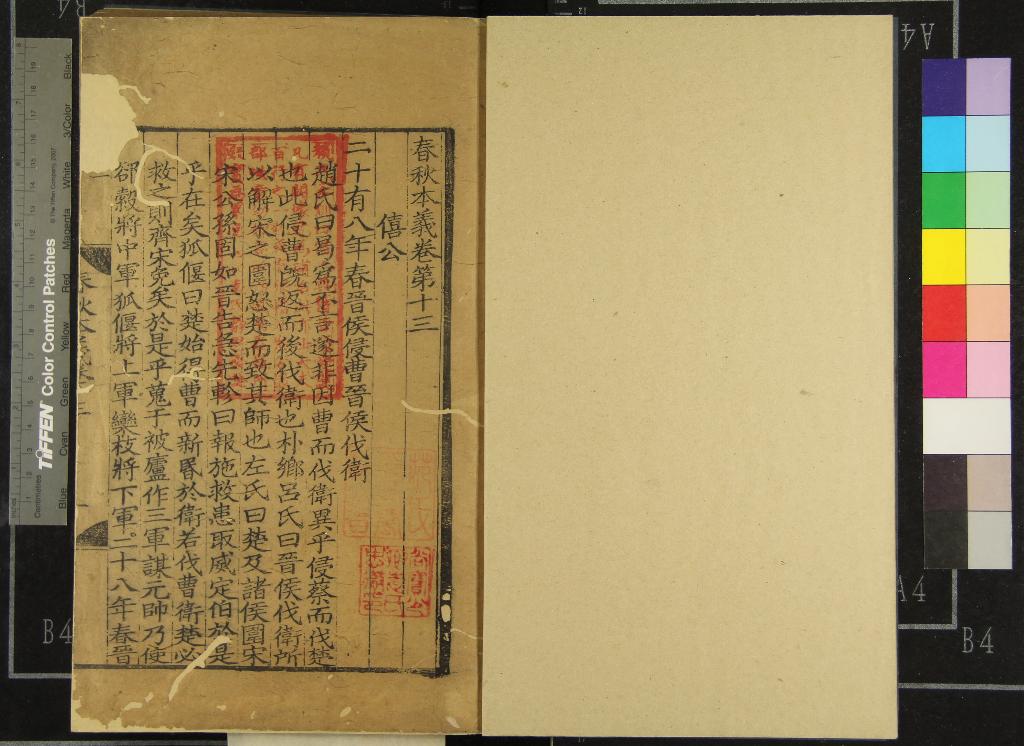 春秋本義卷第十三
僖公
二十有八年春晉侯侵曹晉侯伐衛
趙氏曰曷為不言遂非因曹而伐衛異乎侵蔡而伐楚
也此侵曹既返而後伐衛也朴鄉呂氏曰晉侯伐衛所
以解宋之圍怒楚而致其師也左氏曰楚及諸侯圍宋
宋公孫固如晉告急先軫曰報施救患取威定伯於是
乎在矣狐偃曰楚始得曹而新昬於衛若伐曹衛楚必
救之則齊宋免矣於是乎蒐于被廬作三軍謀元帥乃使
郤縠將中軍狐偃將上軍欒枝將下軍二十八年春晉
TIFFEN Color Control Patches
© The Tiffen Company, 2007
Centimetres
Blue
Cyan
Green
Yellow
Red
Magenta
White
3/Color
Black
A4
A4
B4
B4